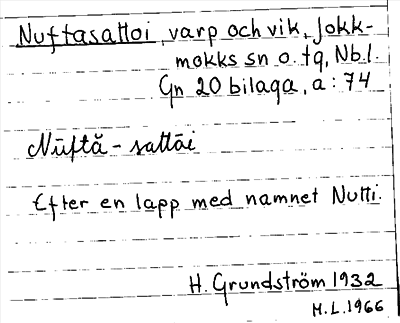 Nuftasattoi, varp och vik, Jokk-
mokks sn o. tg, Nb.l.
Gn 20 bilaga, a: 74
Nūftă-sattāi
Efter en lapp med namnet Nutti.
H. Grundström 1932
M.L. 1966